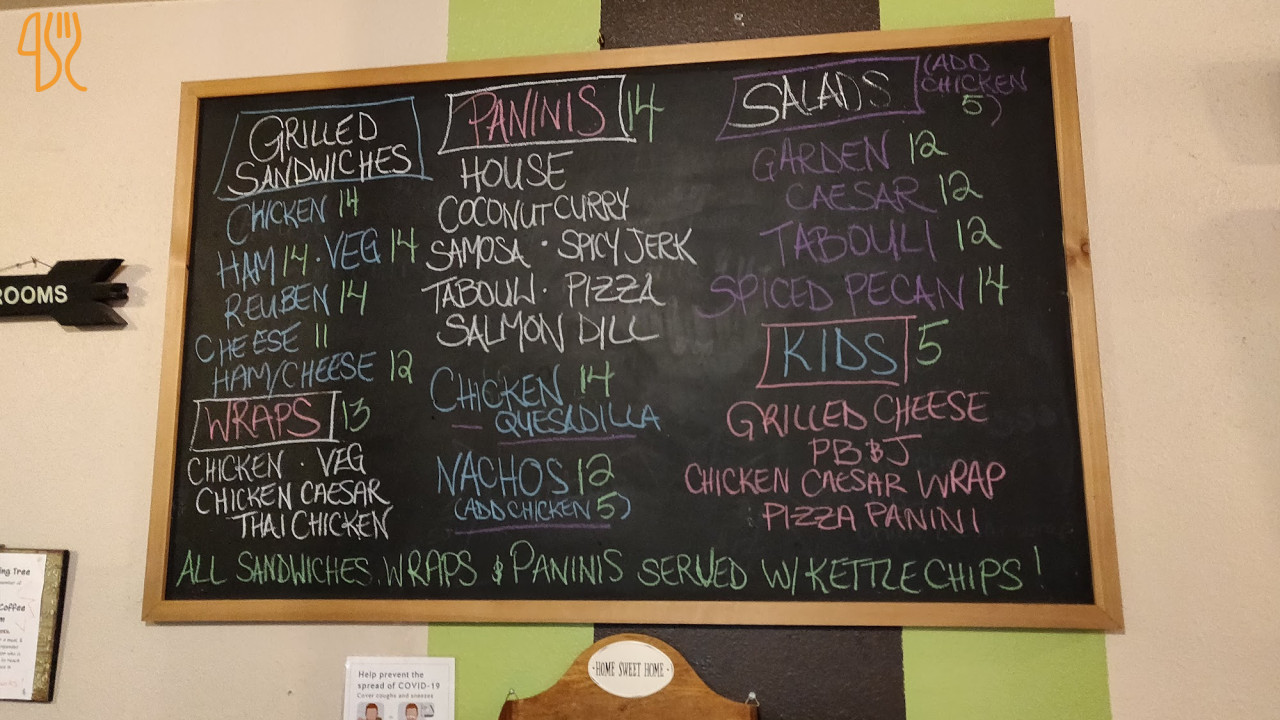 GRILLED
SANDWICHES
CHICKEN 14
HAM 14 · VEG 14
REUBEN 14
CHEESE 11
HAM/CHEESE 12
WRAPS 13
CHICKEN · VEG
CHICKEN CAESAR
THAI CHICKEN
PANINIS 14
HOUSE
COCONUT CURRY
SAMOSA · SPICY JERK
TABOULI · PIZZA
SALMON DILL
CHICKEN 14
QUESADILLA
NACHOS 12
(ADD CHICKEN 5)
SALADS
(ADD
CHICKEN
5)
GARDEN 12
CAESAR 12
TABOULI 12
SPICED PECAN 14
KIDS 5
GRILLED CHEESE
PB&J
CHICKEN CAESAR WRAP
PIZZA PANINI
ALL SANDWICHES, WRAPS & PANINIS SERVED W/ KETTLE CHIPS!
ROOMS
ing Tree
Coffee
HOME SWEET HOME
Help prevent the
spread of COVID-19
Cover coughs and sneezes